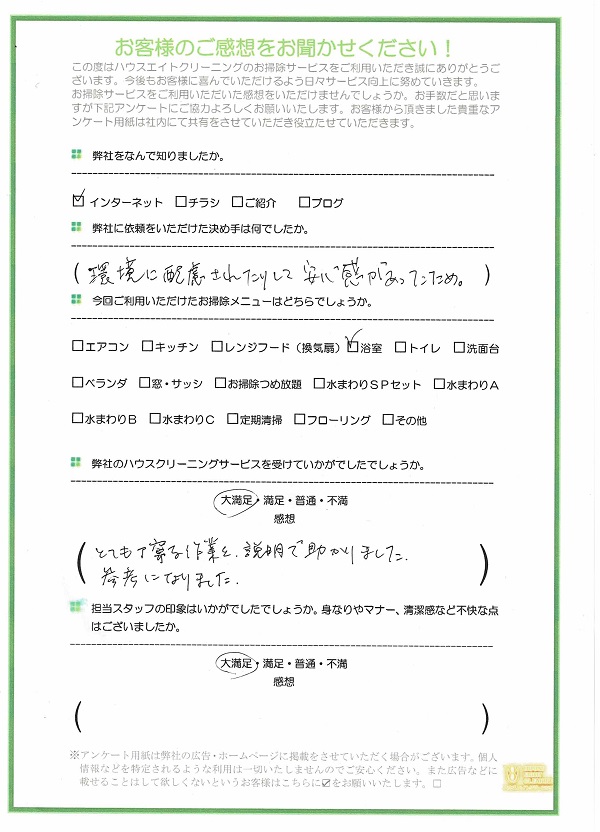 お客様のご感想をお聞かせください！
この度はハウスエイトクリーニングのお掃除サービスをご利用いただき誠にありがとうご
ざいます。今後もお客様に喜んでいただけるよう日々サービス向上に努めていきます。
お掃除サービスをご利用いただいた感想をいただけませんでしょうか。お手数だと思いま
すが下記アンケートにご協力よろしくお願いいたします。お客様から頂きました貴重なア
ンケート用紙は社内にて共有をさせていただき役立たせていただきます。
弊社をなんで知りましたか。
☑インターネット □チラシ □ご紹介 □ブログ
弊社に依頼をいただけた決め手は何でしたか。
(環境に配慮されたりして安心感があったため。)
今回ご利用いただけたお掃除メニューはどちらでしょうか。
□エアコン □キッチン □レンジフード（換気扇）☑浴室 □トイレ □洗面台
□ベランダ □窓・サッシ □お掃除つめ放題 □水まわりＳＰセット □水まわりＡ
□水まわりＢ □水まわりＣ □定期清掃 □フローリング □その他
弊社のハウスクリーニングサービスを受けていかがでしたでしょうか。
大満足・満足・普通・不満
感想
(とても丁寧な作業と、説明で助かりました。
参考になりました。)
担当スタッフの印象はいかがでしたでしょうか。身なりやマナー、清潔感など不快な点
はございましたか。
大満足・満足・普通・不満
感想
( )
※アンケート用紙は弊社の広告・ホームページに掲載をさせていただく場合がございます。個人
情報などを特定されるような利用は一切いたしませんのでご安心ください。また広告などに
載せることはして欲しくないというお客様はこちらに☑をお願いいたします。□